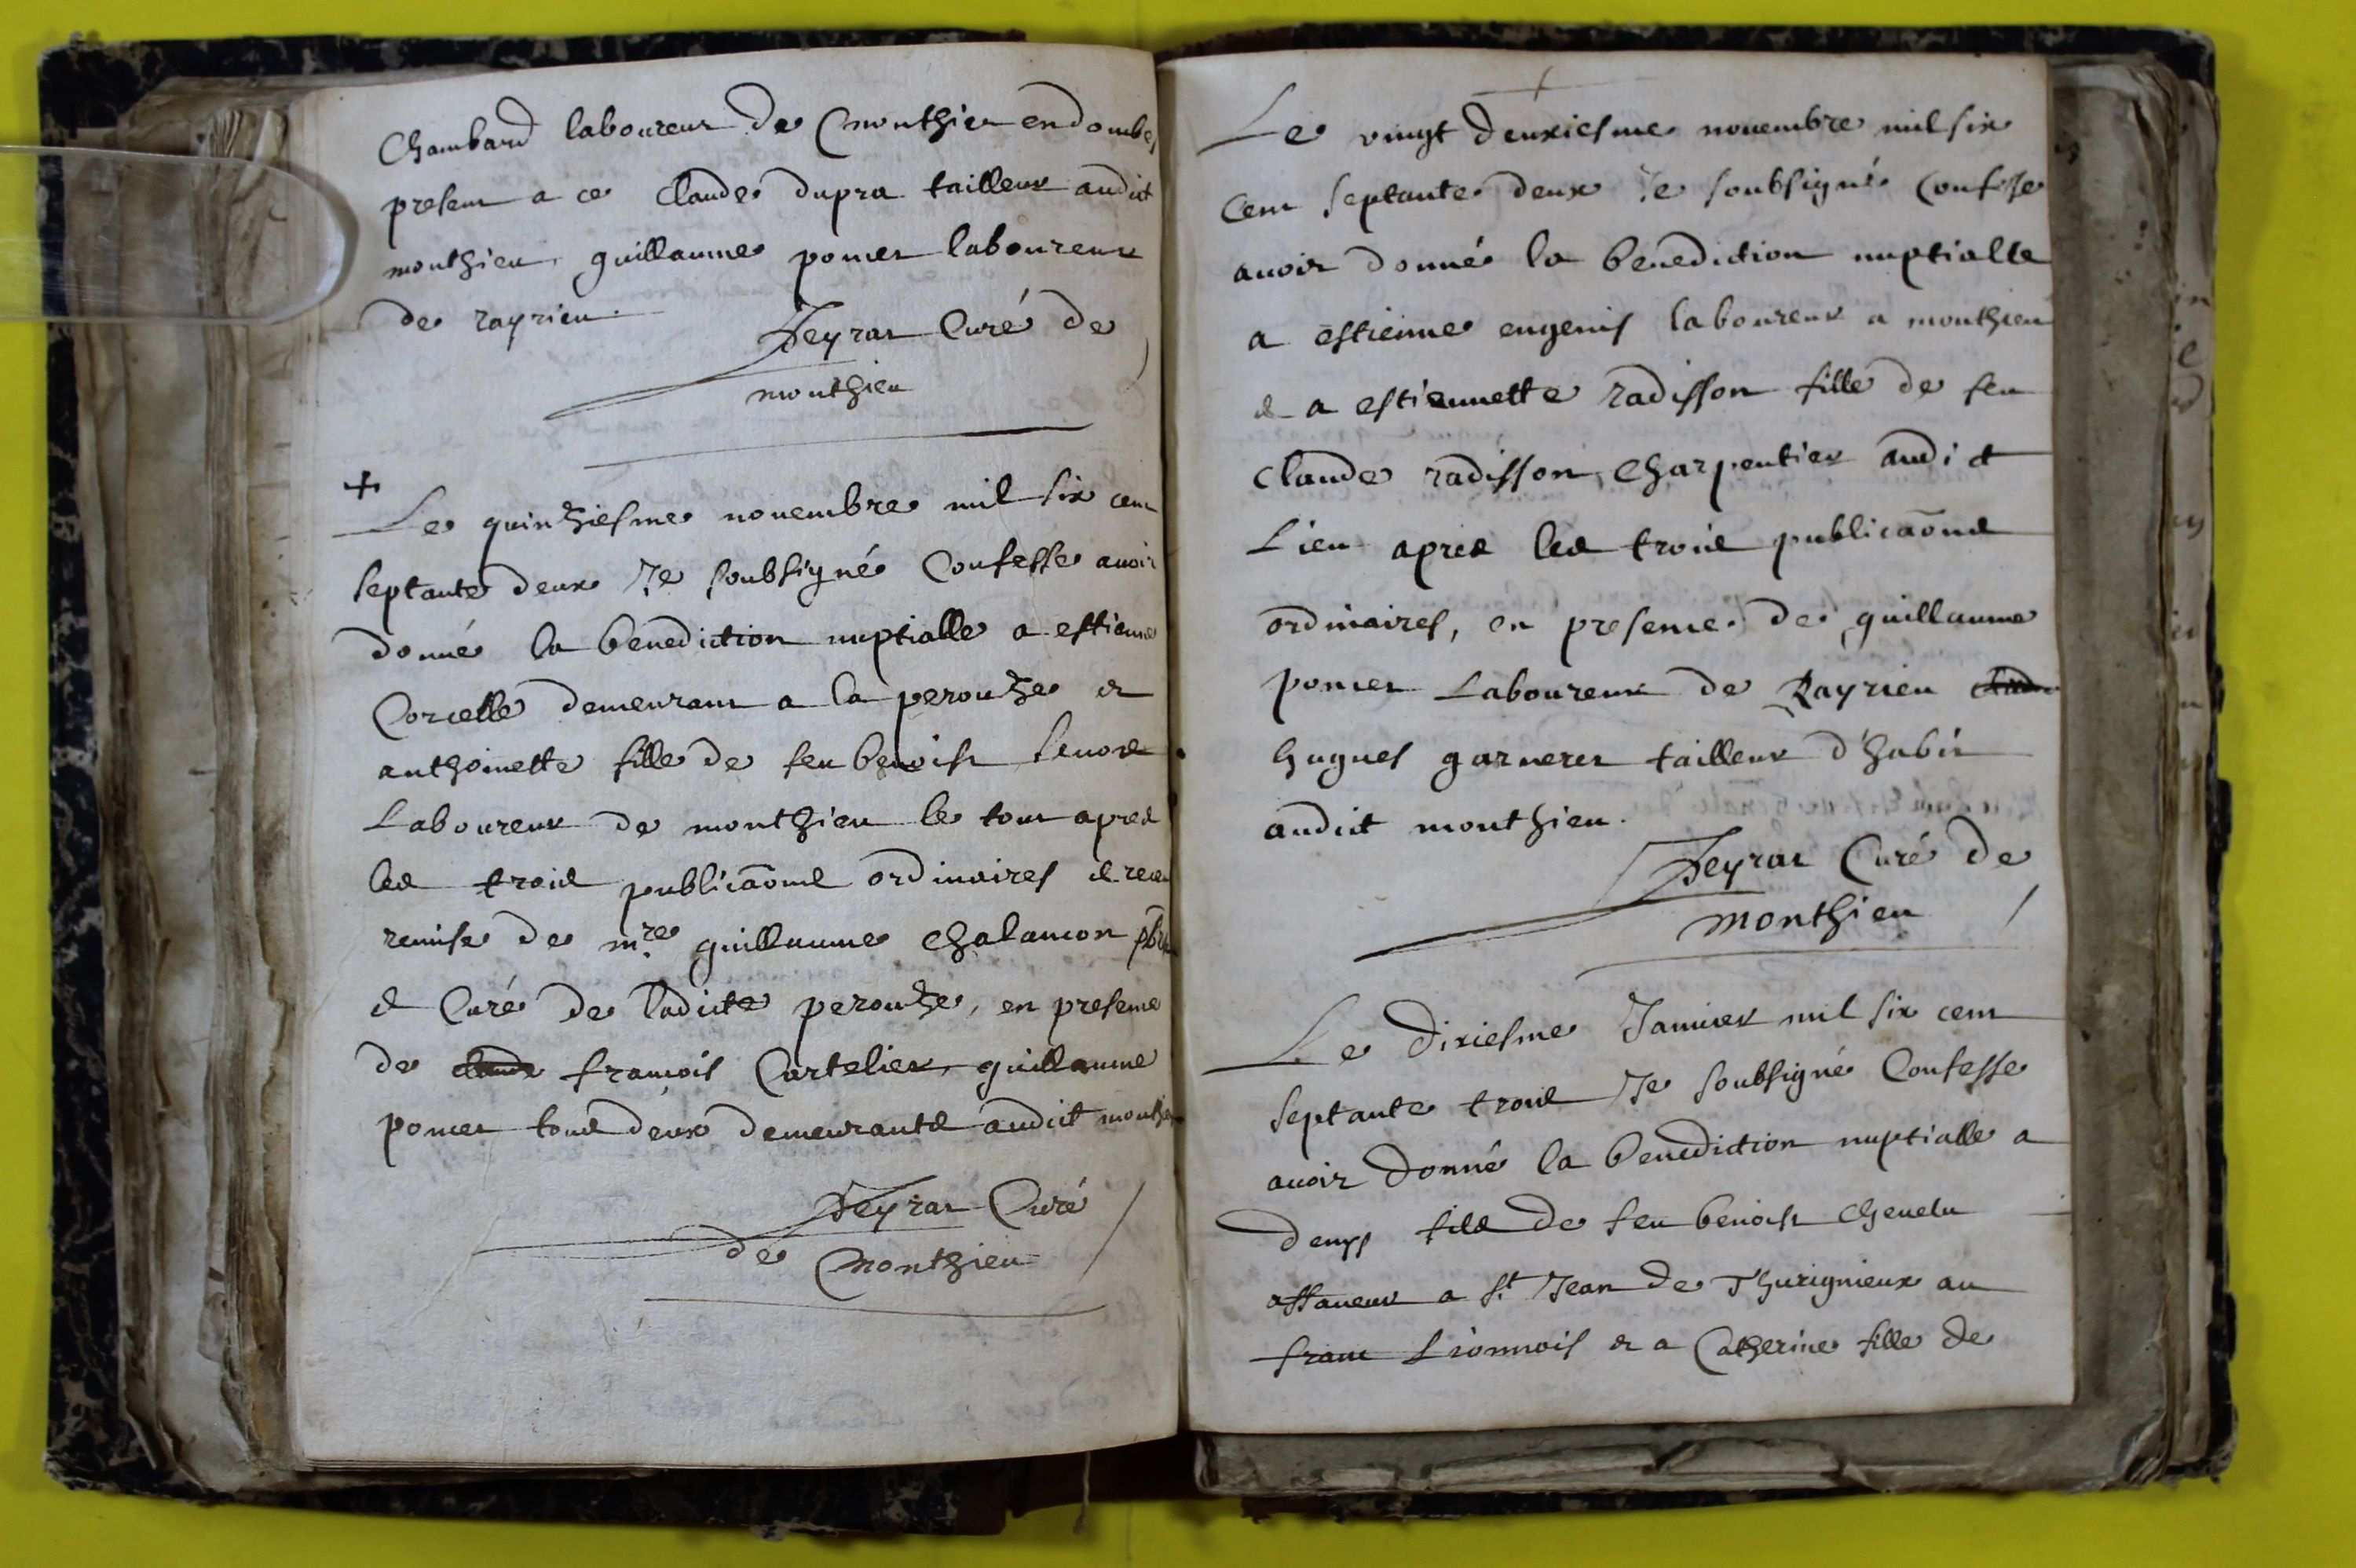 Chambard laboureur de Monthieu en dombes
present a ce Claude dupra tailleur audit
monthieu, guillaume poncet laboureur
de rayrieu.
Feyrat Curé de
monthieu
+
Le quinziesme novembre mil six cent
septante deux Je soubsigné Confesse avoir
donné la benediction nuptialle a estienne
Corcelle demeurant a la perouze et
anthoinette fille de feu benoist
Laboureur de monthieu le tout apres
les trois publicaõns ordinaires et
remise de mre guillaume Chalancon pbre
et Curé de ladicte perouze, en presence
de Claude francois Cartelier, guillaume
poncet tous deux demeurants audict monthieu
Feyrat Curé
de Monthieu
+
Le vingt deuxiesme novembre mil six
Cent septante deux Je soubsigné Confesse
avoir donné la benediction nuptialle
a estienne engenis laboureur a monthieu
et a estiennette radisson fille de feu
Claude radisson, Charpentier audict
Lieu apres les trois publicaõns
ordinaires, en presence de guillaume
poncet Laboureur de Rayrieu
hugues garneret tailleur d'habit
audict monthieu.
Feyrat Curé de
Monthieu
Le dixiesme Janvier mil six cent
septante trois Je soubsigné Confesse
avoir donné la benediction nuptialle a
denys fils de feu benoist Chevelu
affaneur a St Jean de Thurignieux au
franc Lionnois et a Catherine fille de